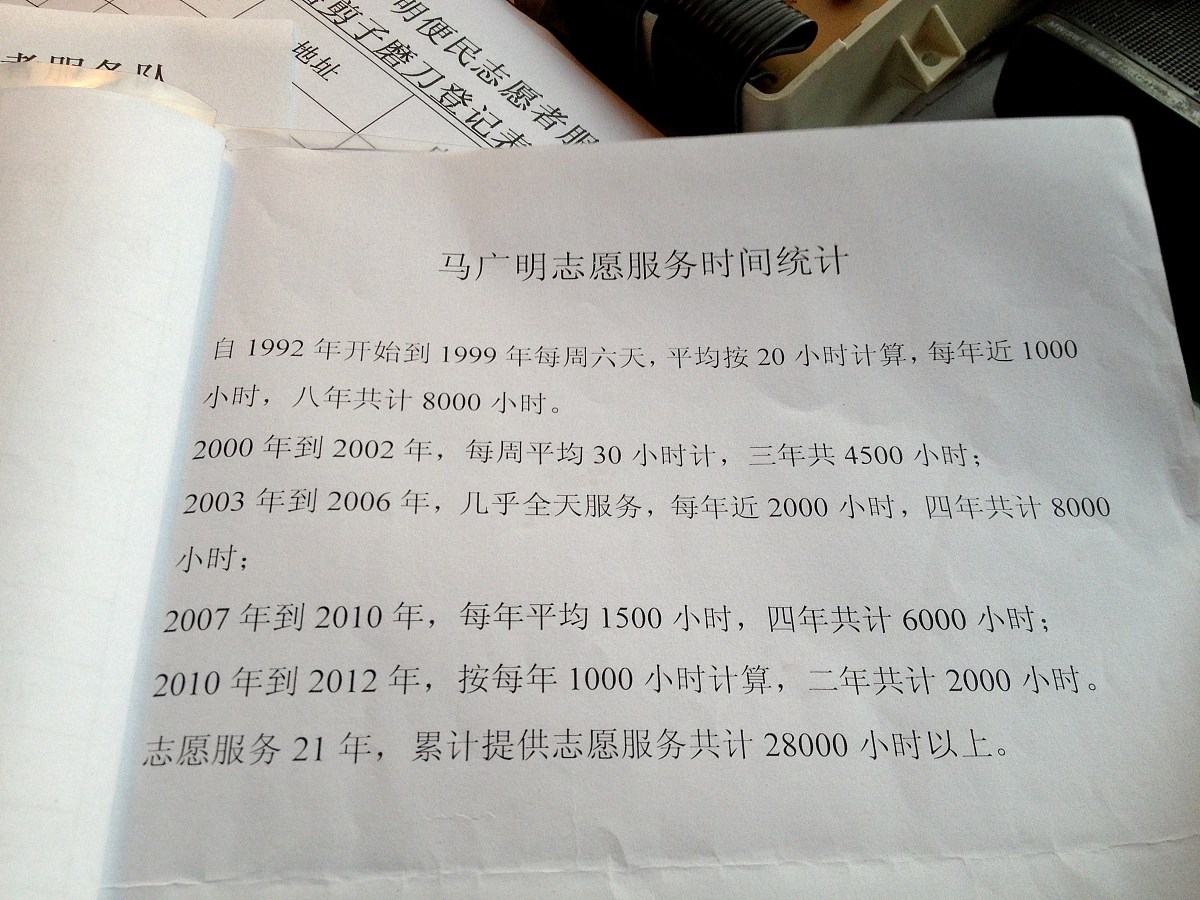 者服务队
地址
明便民志愿者服
剪子磨刀登记表
马广明志愿服务时间统计
自 1992 年开始到 1999 年每周六天，平均按 20 小时计算，每年近 1000
小时，八年共计 8000 小时。
2000 年到 2002 年，每周平均 30 小时计，三年共 4500 小时；
2003 年到 2006 年，几乎全天服务，每年近 2000 小时，四年共计 8000
小时；
2007 年到 2010 年，每年平均 1500 小时，四年共计 6000 小时；
2010 年到 2012 年，按每年 1000 小时计算，二年共计 2000 小时。
志愿服务 21 年，累计提供志愿服务共计 28000 小时以上。